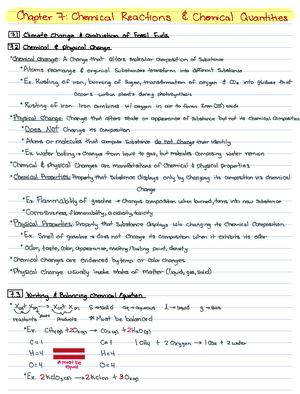 Chapter 7: Chemical Reactions & Chemical Quantities
7.1 Climate Change & Combustion of Fossil Fuels
7.2 Chemical & Physical Change
*Chemical Change: A change that alters molecular composition of substance
*Atoms rearrange & original substances transform into different substance
*Ex. Rusting of iron, burning of sugar, transformation of oxygen & CO2 into glucose that
occurs within plants during photosynthesis
*Rusting of iron: Iron combines w/ oxygen in air to form Iron (III) oxide
*Physical Change: Change that alters state or appearance of substance but not its Chemical Composition
*Does NOT change its composition
*Atoms or molecules that compose substance do not change their identity
*Ex. Water boiling → Changes from liquid to gas, but molecules composing water remain
*Chemical & physical Changes are manifestations of chemical & physical properties
*Chemical Properties: Property that Substance displays only by Changing its composition via chemical
Change
*Ex. Flammability of gasoline → Changes composition when burned, turns into new substance
*Corrosiveness, flammability, acidity, toxicity
*Physical Properties: Property that Substance displays w/o changing its Chemical Composition
*Ex. Smell of gasoline → does not change its composition when it exhibits its odor
*Odor, taste, color, appearance, melting/boiling point, density
*Chemical changes are evidenced by temp or color changes
*Physical Change usually involve states of matter (liquid, gas, solid)
7.3 Writing & Balancing Chemical Equation
s → solid aq → aqueous l → liquid g → gas
reactants products *Must be balanced
*Ex. CH4(g) + 2O2(g) → CO2(g) + 2H2O(g)
C=1 C=1 1 CH4 + 2 Oxygen → 1 CO2 + 2 water
H=4 H=4
O=4 O=4
*Must be equal
*Ex. 2KClO3(s) → 2KCl(s) + 3O2(g)